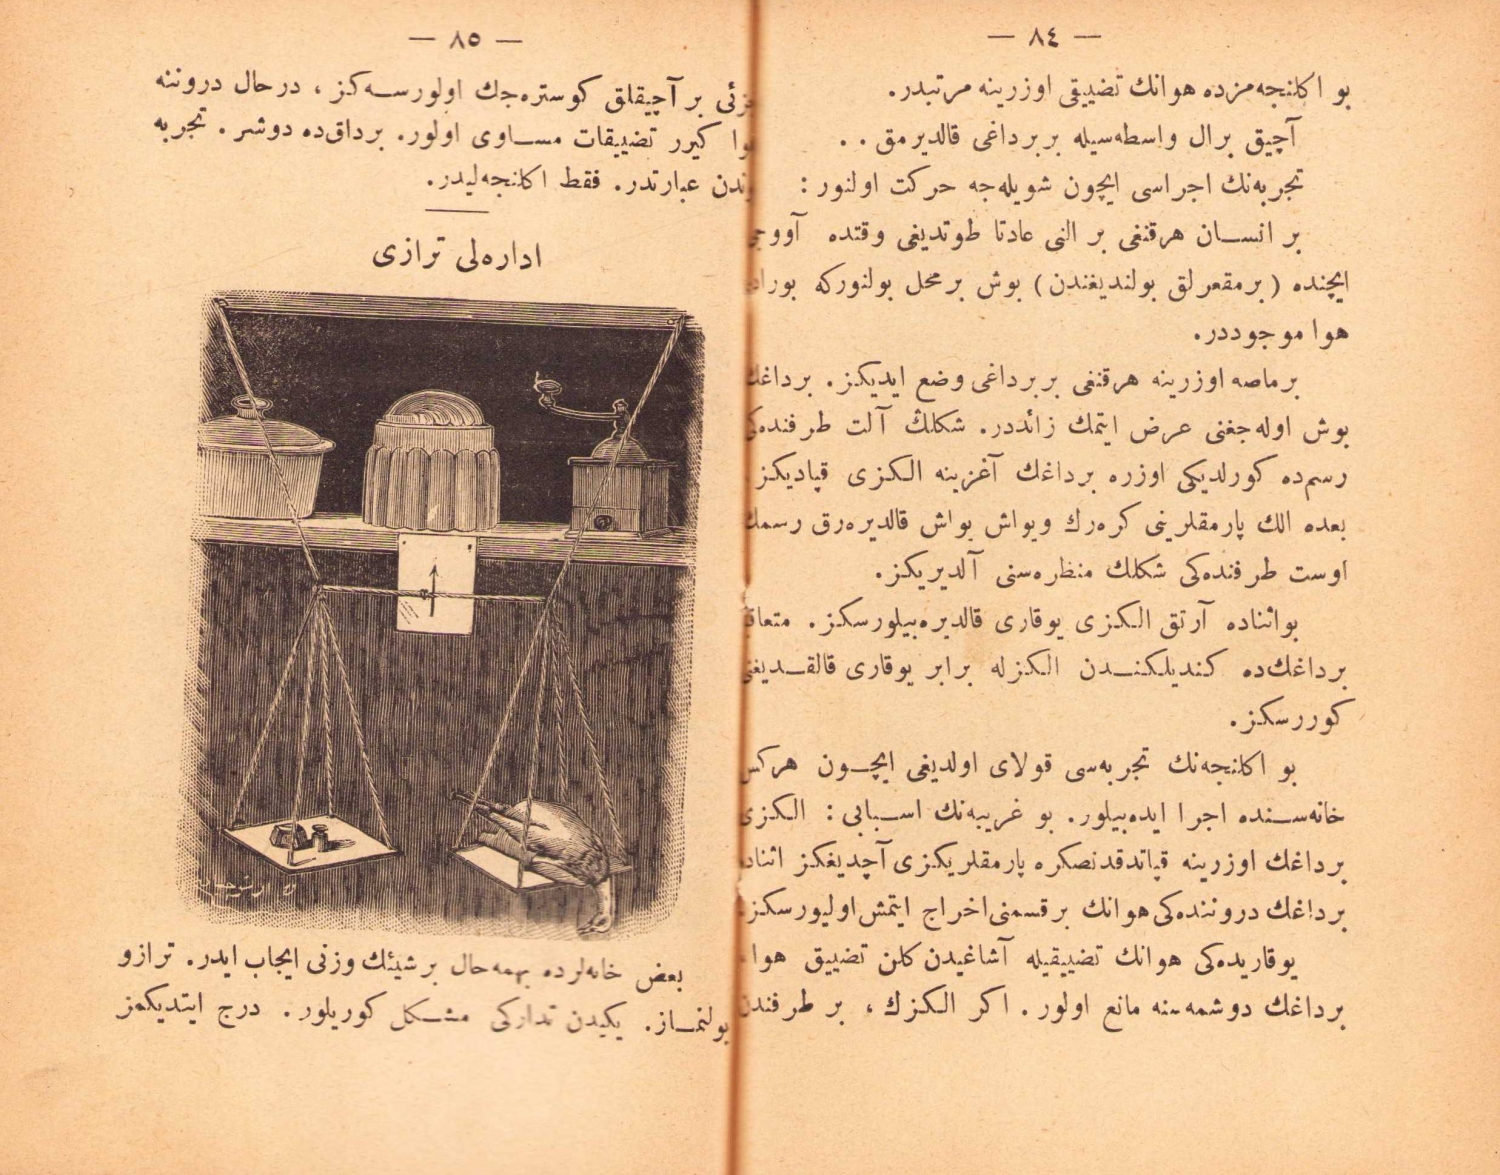 — ٨٤ —
بو اكلنجه‌مزده هوانك تضييقى اوزرينه مرتبدر.
آچيق برال واسطه‌سيله بربرداغى قالديرمق . .
تجربه‌نك اجراسى ايچون شويله‌جه حركت اولنور :
بر انسان هرقنغى بر النى عادتا طوتديغى وقتده آووجى
ايچنده ( برمقعرلق بولنديغندن ) بوش برمحل بولنوركه
هوا موجوددر.
برماصه اوزرينه هرقنغى بربرداغى وضع ايديكز. برداغك
بوش اوله‌جغنى عرض ايتمك زائددر. شكلك آلت طرفنده‌كى
رسمده كورلديكى اوزره برداغك آغزينه الكزى قپاديكز
بعده الك پارمقلرينى كره‌رك ويواش يواش قالديره‌رق رسمك
اوست طرفنده‌كى شكلك منظره‌سنى آلديريكز.
بواثناده آرتق الكزى يوقارى قالديره‌بيلورسكز. متعاقب
برداغك‌ده كنديلكندن الكزله برابر يوقارى قالقديغنى
كوررسكز.
بو اكلنجه‌نك تجربه‌سى قولاى اولديغى ايچون هركس
خانه‌سنده اجرا ايده‌بيلور. بو غريبه‌نك اسبابى : الكزى
برداغك اوزرينه قپاتدقدنصكره پارمقلريكزى آچديغكز اثناده
برداغك دروننده‌كى هوانك برقسمنى اخراج ايتمش اوليورسكز.
يوقاريده‌كى هوانك تضييقيله آشاغيدن كلن تضييق هوا
برداغك دوشمه‌سنه مانع اولور . اكر الكزك ، بر طرفندن
— ٨٥ —
جزئى بر آچيقلق كوستره‌جك اولورسه‌كز ، درحال دروننه
هوا كيرر تضييقات مساوى اولور. برداق‌ده دوشر . تجربه
بوندن عبارتدر. فقط اكلنجه‌ليدر.
اداره‌لى ترازى
بعض خانه‌لرده بهمه‌حال برشيئك وزنى ايجاب ايدر. ترازو
بولنماز. يكيدن تداركى مشكل كوريلور. درج ايتديكمز